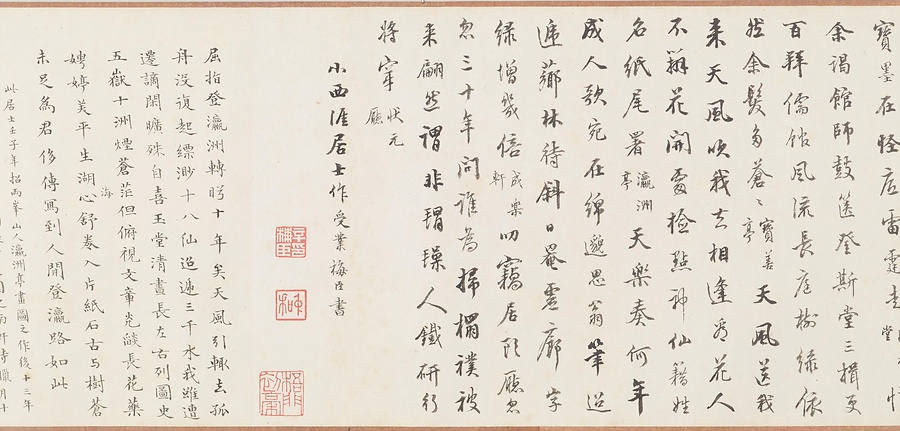 寶墨在怪店雷霆走
余謁館師鼓篋登斯堂三揖更
百拜儒館風流長庭樹綠依
然余髮多蒼蒼寶善亭天風送我
來天風吹我去相逢看花人
不辨花開處檢點神仙籍姓
名紙尾署瀛洲亭天樂奏何年
成人歌宛在綿邈思翁筆迢
遞薜林待斜日罨畫廊字
綠增幾倍成樂軒叨竊居頭廳忽
忽三十年問誰為掃榻襆被
來翩然謂非瑁璪人鐵研行
將穿狀元廳
小西涯居士作受業梅臣書
屈指登瀛洲轉眄十年矣天風引輒去孤
舟沒復起縹渺十八仙迢遞三千水我雖遭
遷謫閑曠殊自喜玉堂清晝長左右列圖史
五嶽十洲煙蒼茫但俯視文章光燄長花藥
海
娉婷美平生湖心舒卷入片紙石古與樹蒼
未足為君侈傳寫到人間登瀛路如此
此居士壬子年招兩峯山人瀛洲亭畫圖之作後十三年